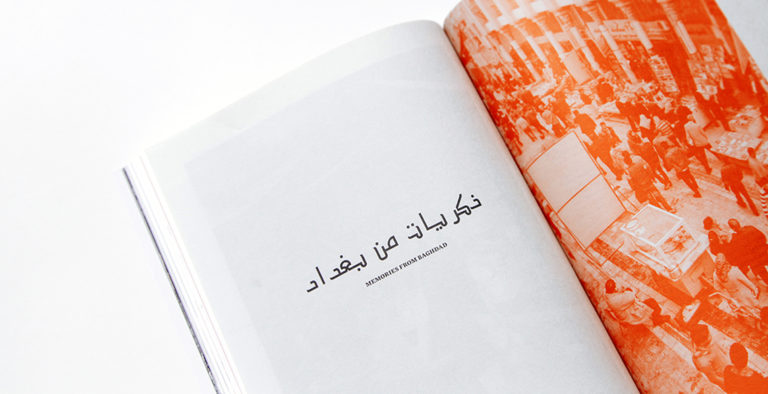 ذكريات من بغداد
MEMORIES FROM BAGHDAD